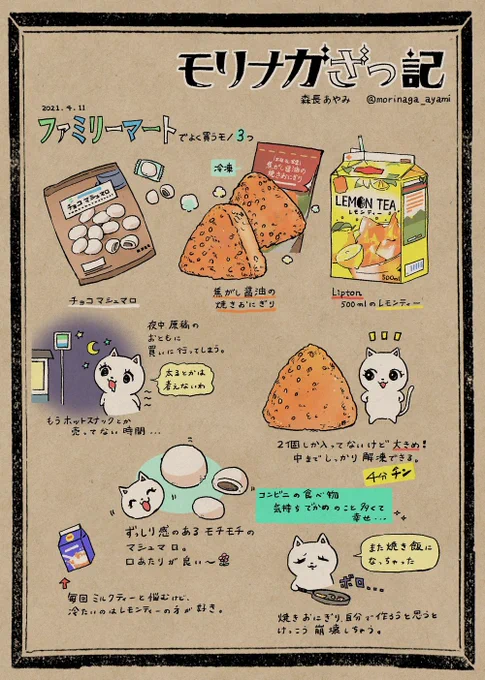 モリナガざっ記
森長あやみ @morinaga_ayami
2021.4.11
ファミリーマートでよく買うモノ3つ
チョコマシュマロ
冷凍
焦がし醤油の
焼きおにぎり
LEMON TEA
レモンティー
500ml
チョコマシュマロ
焦がし醤油の
焼きおにぎり
Lipton
500mlのレモンティー
夜中原稿の
おともに
買いに行ってしまう。
太るとかは
考えないわ
もうホットスナックとか
売ってない時間...
2個しか入ってないけど大きめ!
中までしっかり解凍できる。
4分チン
ずっしり感のあるモチモチの
マシュマロ。
口あたりが良い〜
コンビニの食べ物
気持ちでかめのこと多くて
幸せ...
毎回ミルクティーと悩むけど、
冷たいのはレモンティーの方が好き。
また焼き飯に
なっちゃった
ボロ...
焼きおにぎり、自分で作ろうと思うと
けっこう崩壊しちゃう。